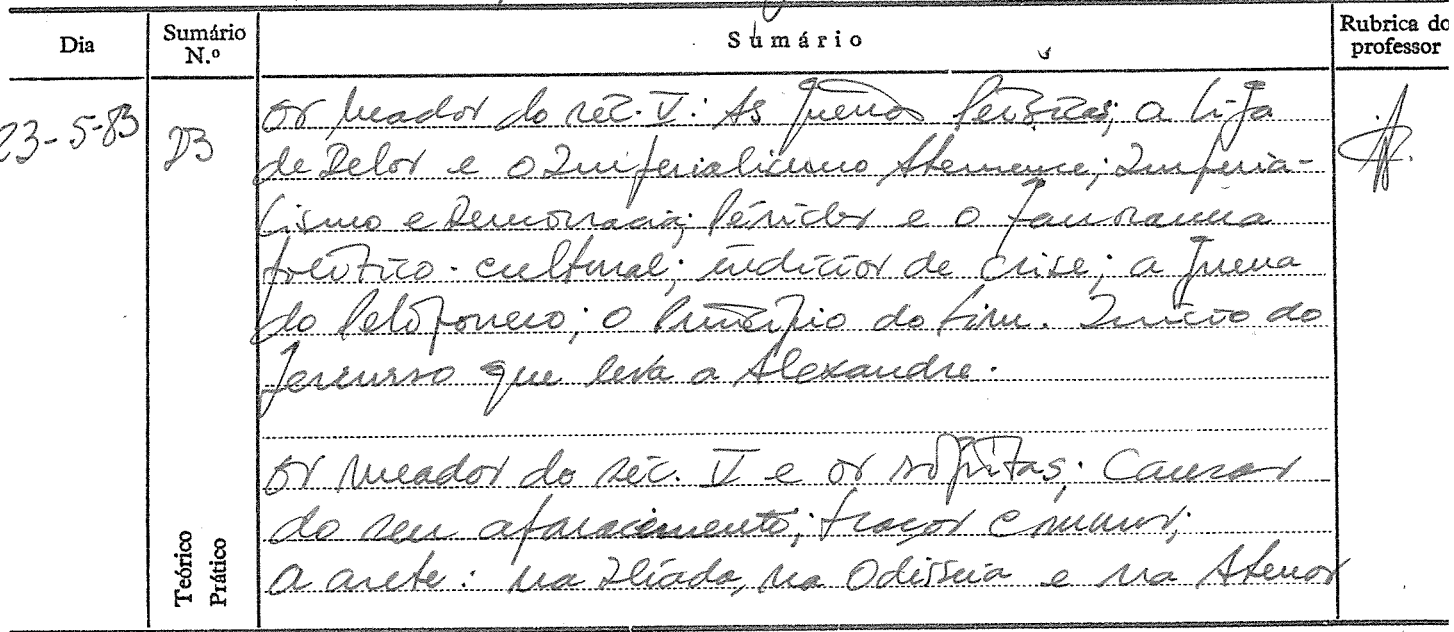 Dia Sumário N.º Sumário Rubrica do professor
23-5-83
Os meados do séc. V: As guerras Pérsicas; a Liga
de Delos e o Imperialismo Ateniense; Imperia-
lismo e Democracia; Péricles e o panorama
político-cultural; indícios de crise; a guerra
do Peloponeso; o Princípio do fim. Início do
percurso que leva a Alexandre.
Os meados do séc. V e os sofistas. Causas
do seu aparecimento; traços comuns;
a arete: na Ilíada, na Odisseia e na Atenas
Teórico
Prático